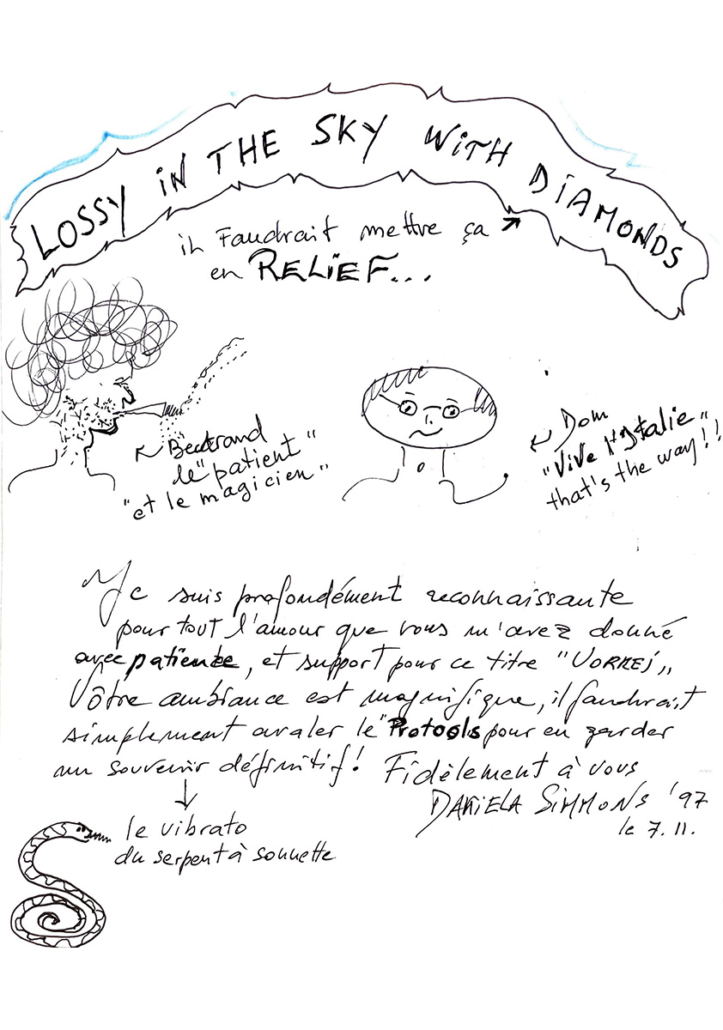 LOSSY IN THE SKY WITH DIAMONDS
il Faudrait mettre ça
en RELIEF...
Bertrand
le "patient"
"et le magicien"
Dom
"Vive l'Italie"
that's the way!!
Je suis profondément reconnaissante
pour tout l'amour que vous m'avez donné
avec patience, et support pour ce titre "VORREI"
Vôtre ambiance est magnifique, il faudrait
simplement avaler le "Protools pour en garder
un souvenir définitif! Fidèlement à vous
DANIELA SIMMONS '97
le 7.11.
le vibrato
du serpent à sonnette